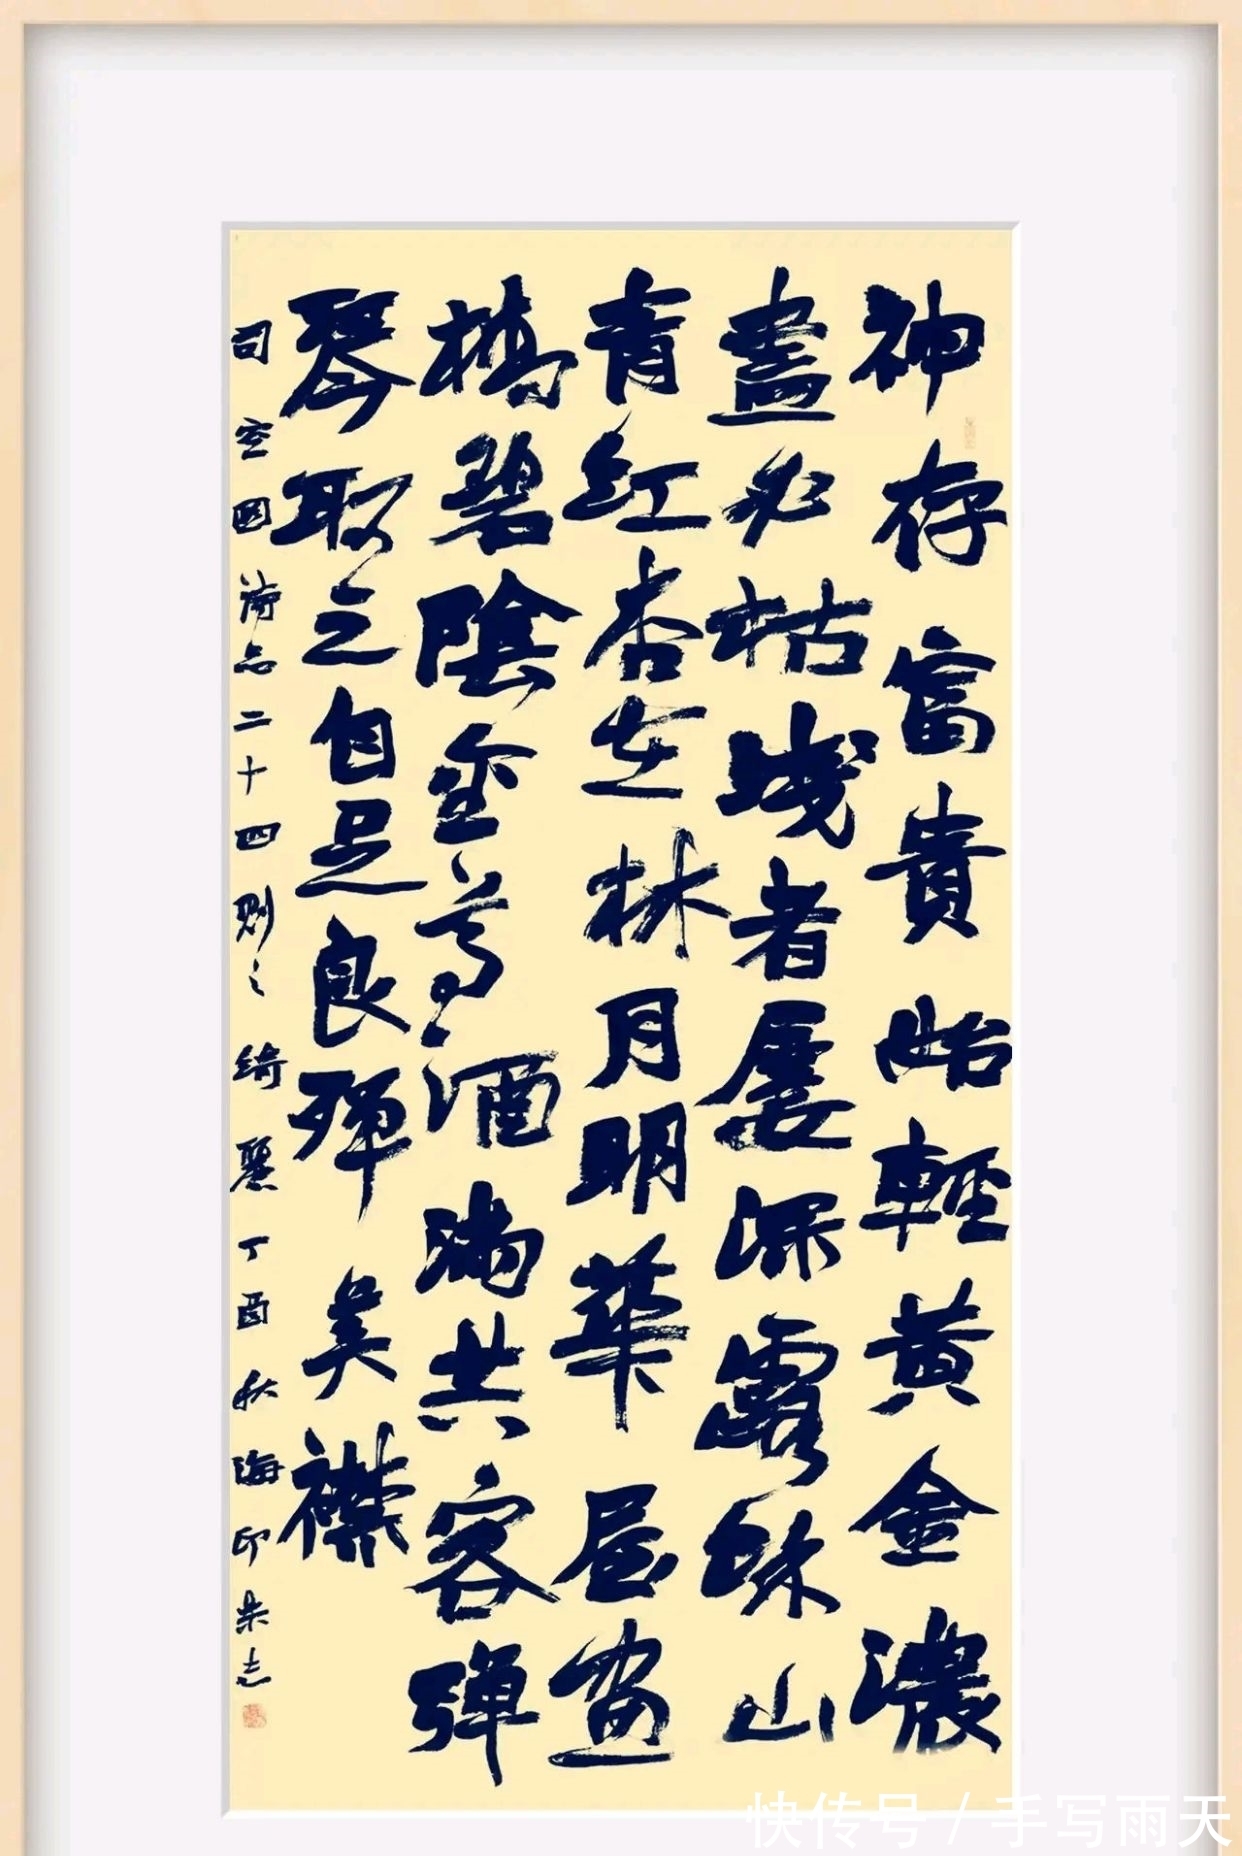 神存富貴始輕黃金濃
盡必枯淺者屢深露餘山
青紅杏在林月明華屋畫
橋碧陰金尊酒滿共客彈
琴取之自足良殫美襟
司空圖詩品二十四則之綺麗丁酉秋海印朱志
快传号 / 手写雨天